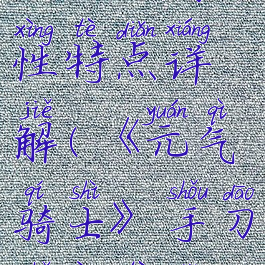 xìng tè diǎn xiáng
性特点详
jiě yuán qì
解(《元气
qí shì shǒu dāo
骑士》手刀